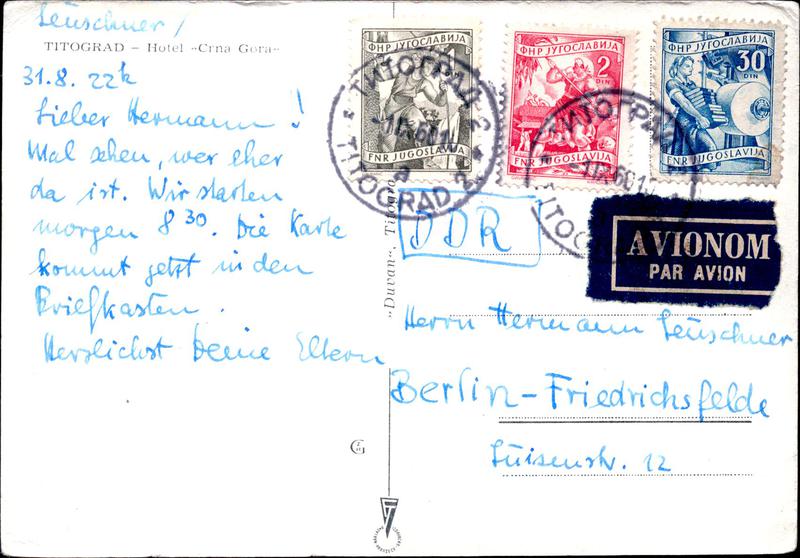 Leuschner /
TITOGRAD – Hotel »Crna Gora«
31.8. 22h
Lieber Hermann!
Mal sehen, wer eher
da ist. Wir starten
morgen 8 30. Die Karte
kommt jetzt in den
Briefkasten.
Herzlichst Deine Eltern
»Duvan«, Titograd
ФНР ЈУГОСЛАВИЈА
1
FNR JUGOSLAVIJA
ФНР ЈУГОСЛАВИЈА
2
DIN
FNR JUGOSLAVIJA
ФНР ЈУГОСЛАВИЈА
30
DIN
FNR JUGOSLAVIJA
ТИТОГРАД 2
TITOGRAD 2
ТИТОГРАД
DDR
AVIONOM
PAR AVION
Herrn Hermann Leuschner
Berlin-Friedrichsfelde
Luisenstr. 12